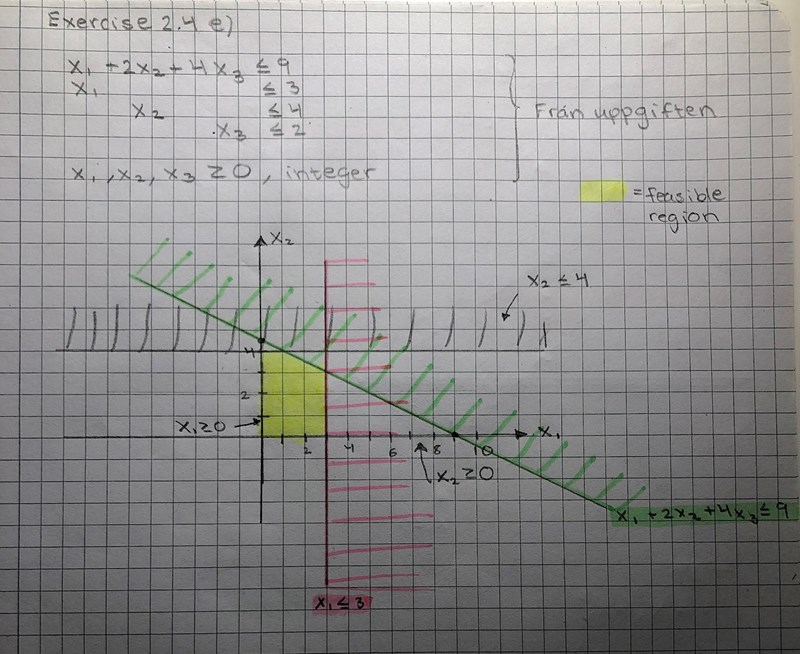 Exercise 2.4 e)
x₁ + 2x₂ + 4x₃ ≤ 9
x₁ ≤ 3
x₂ ≤ 4
x₃ ≤ 2
Från uppgiften
x₁, x₂, x₃ ≥ 0, integer
= feasible
region
x₂
x₂ ≤ 4
4
2
x₁ ≥ 0
x₁
2 4 6 8 10
x₂ ≥ 0
x₁ + 2x₂ + 4x₃ ≤ 9
x₁ ≤ 3